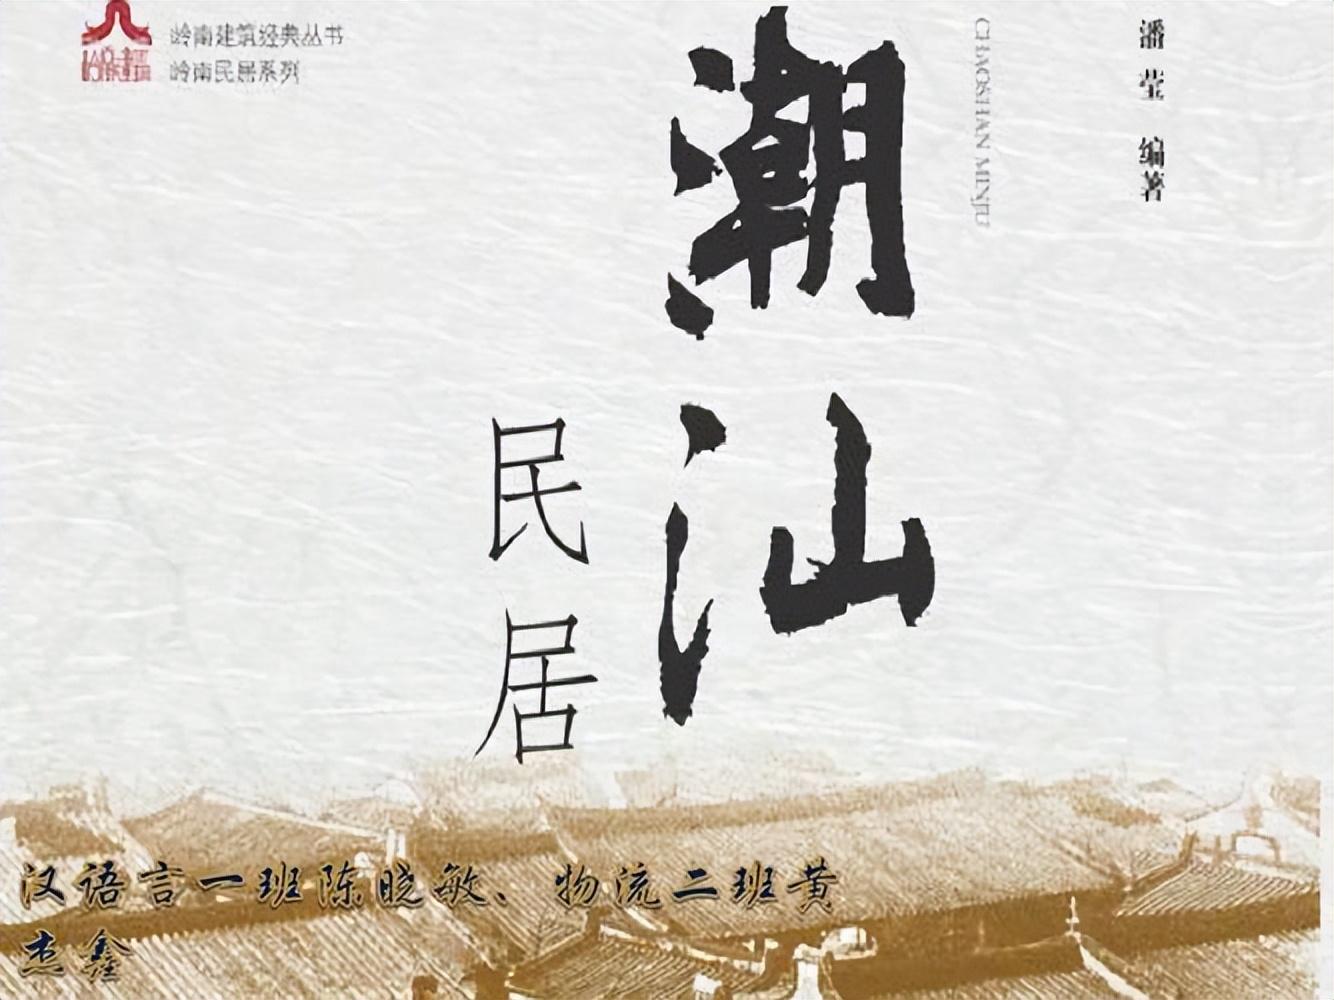 岭南建筑经典丛书
岭南民居系列
潮汕
民居
CHAOSHAN MINJU
潘莹 编著
汉语言一班陈晓敏、物流二班黄
杰鑫